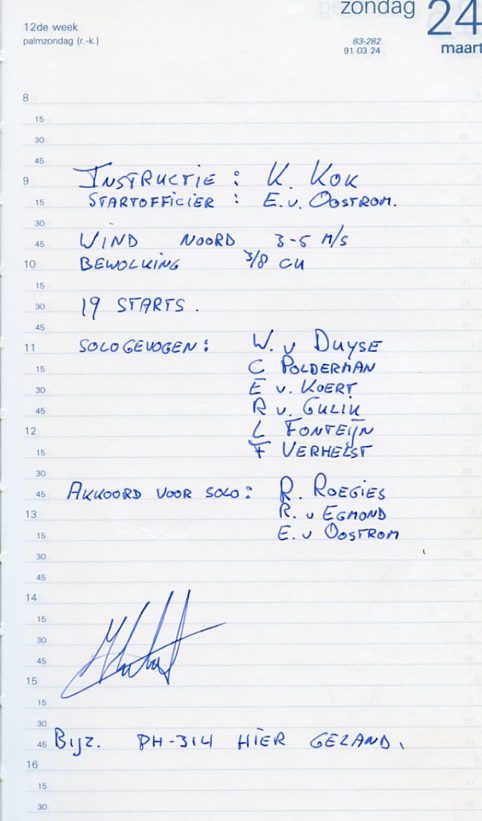 zondag 24
12de week
palmzondag (r.-k.)
83-282
91 03 24
maart
8
15
30
45
9 INSTRUCTIE : K. KOK
15 STARTOFFICIER : E. v. OOSTROM.
30
45 WIND NOORD 3-5 M/S
10 BEWOLKING 3/8 CU
15
30 19 STARTS.
45
11 SOLOGEVOGEN: W. v DUYSE
15 C POLDERMAN
30 E v. KOERT
45 R v. GULIK
12 L FONTEIJN
15 F VERHELST
30
45 AKKOORD VOOR SOLO: R. ROEGIES
13 R. v EGMOND
15 E. v OOSTROM
30
45
14
15
30
45
15
15
30
45 BIJZ. PH-314 HIER GELAND.
16
15
30